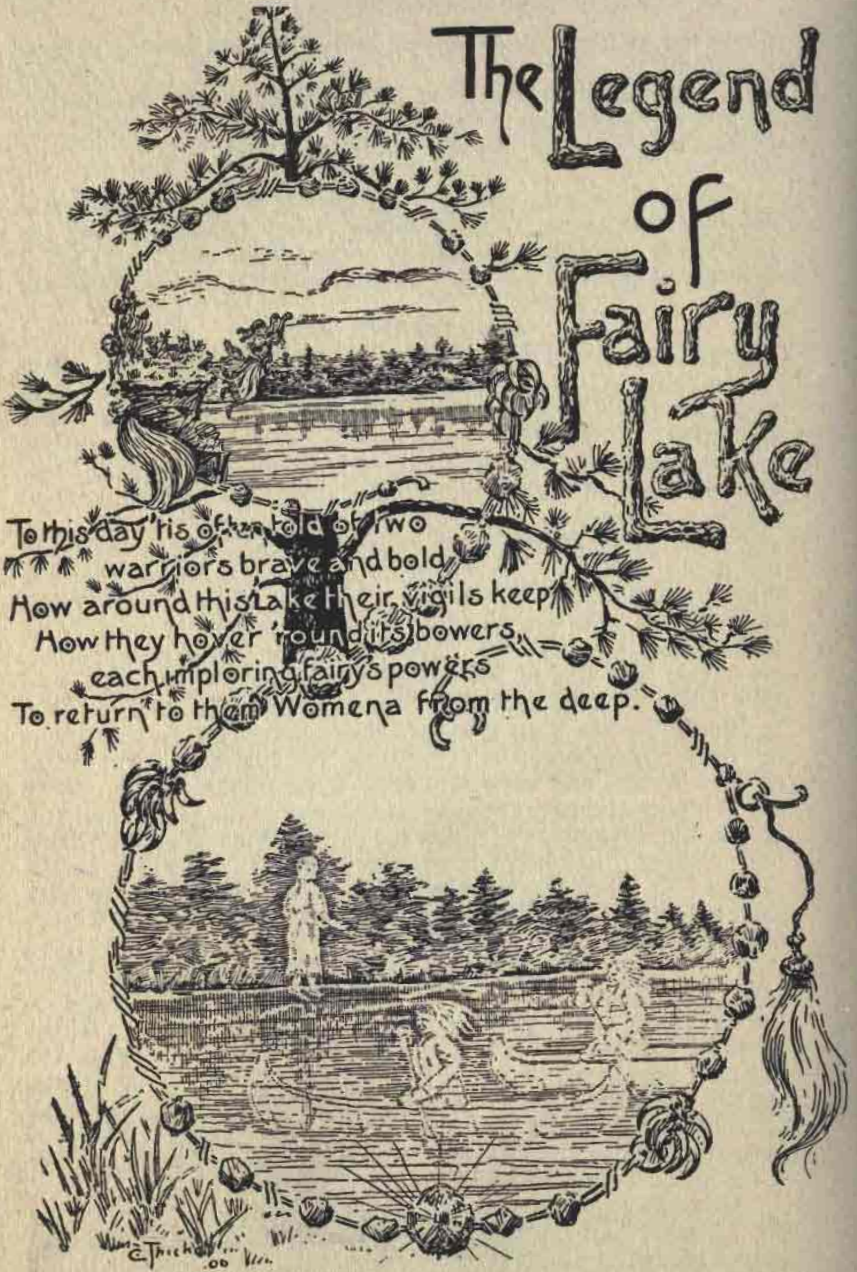 The Legend
of
Fairy
Lake
To this day 'tis often told of two
warriors brave and bold
How around this Lake their vigils keep
How they hover 'round its bowers,
each imploring fairy's powers
To return to them Womena from the deep.
.00